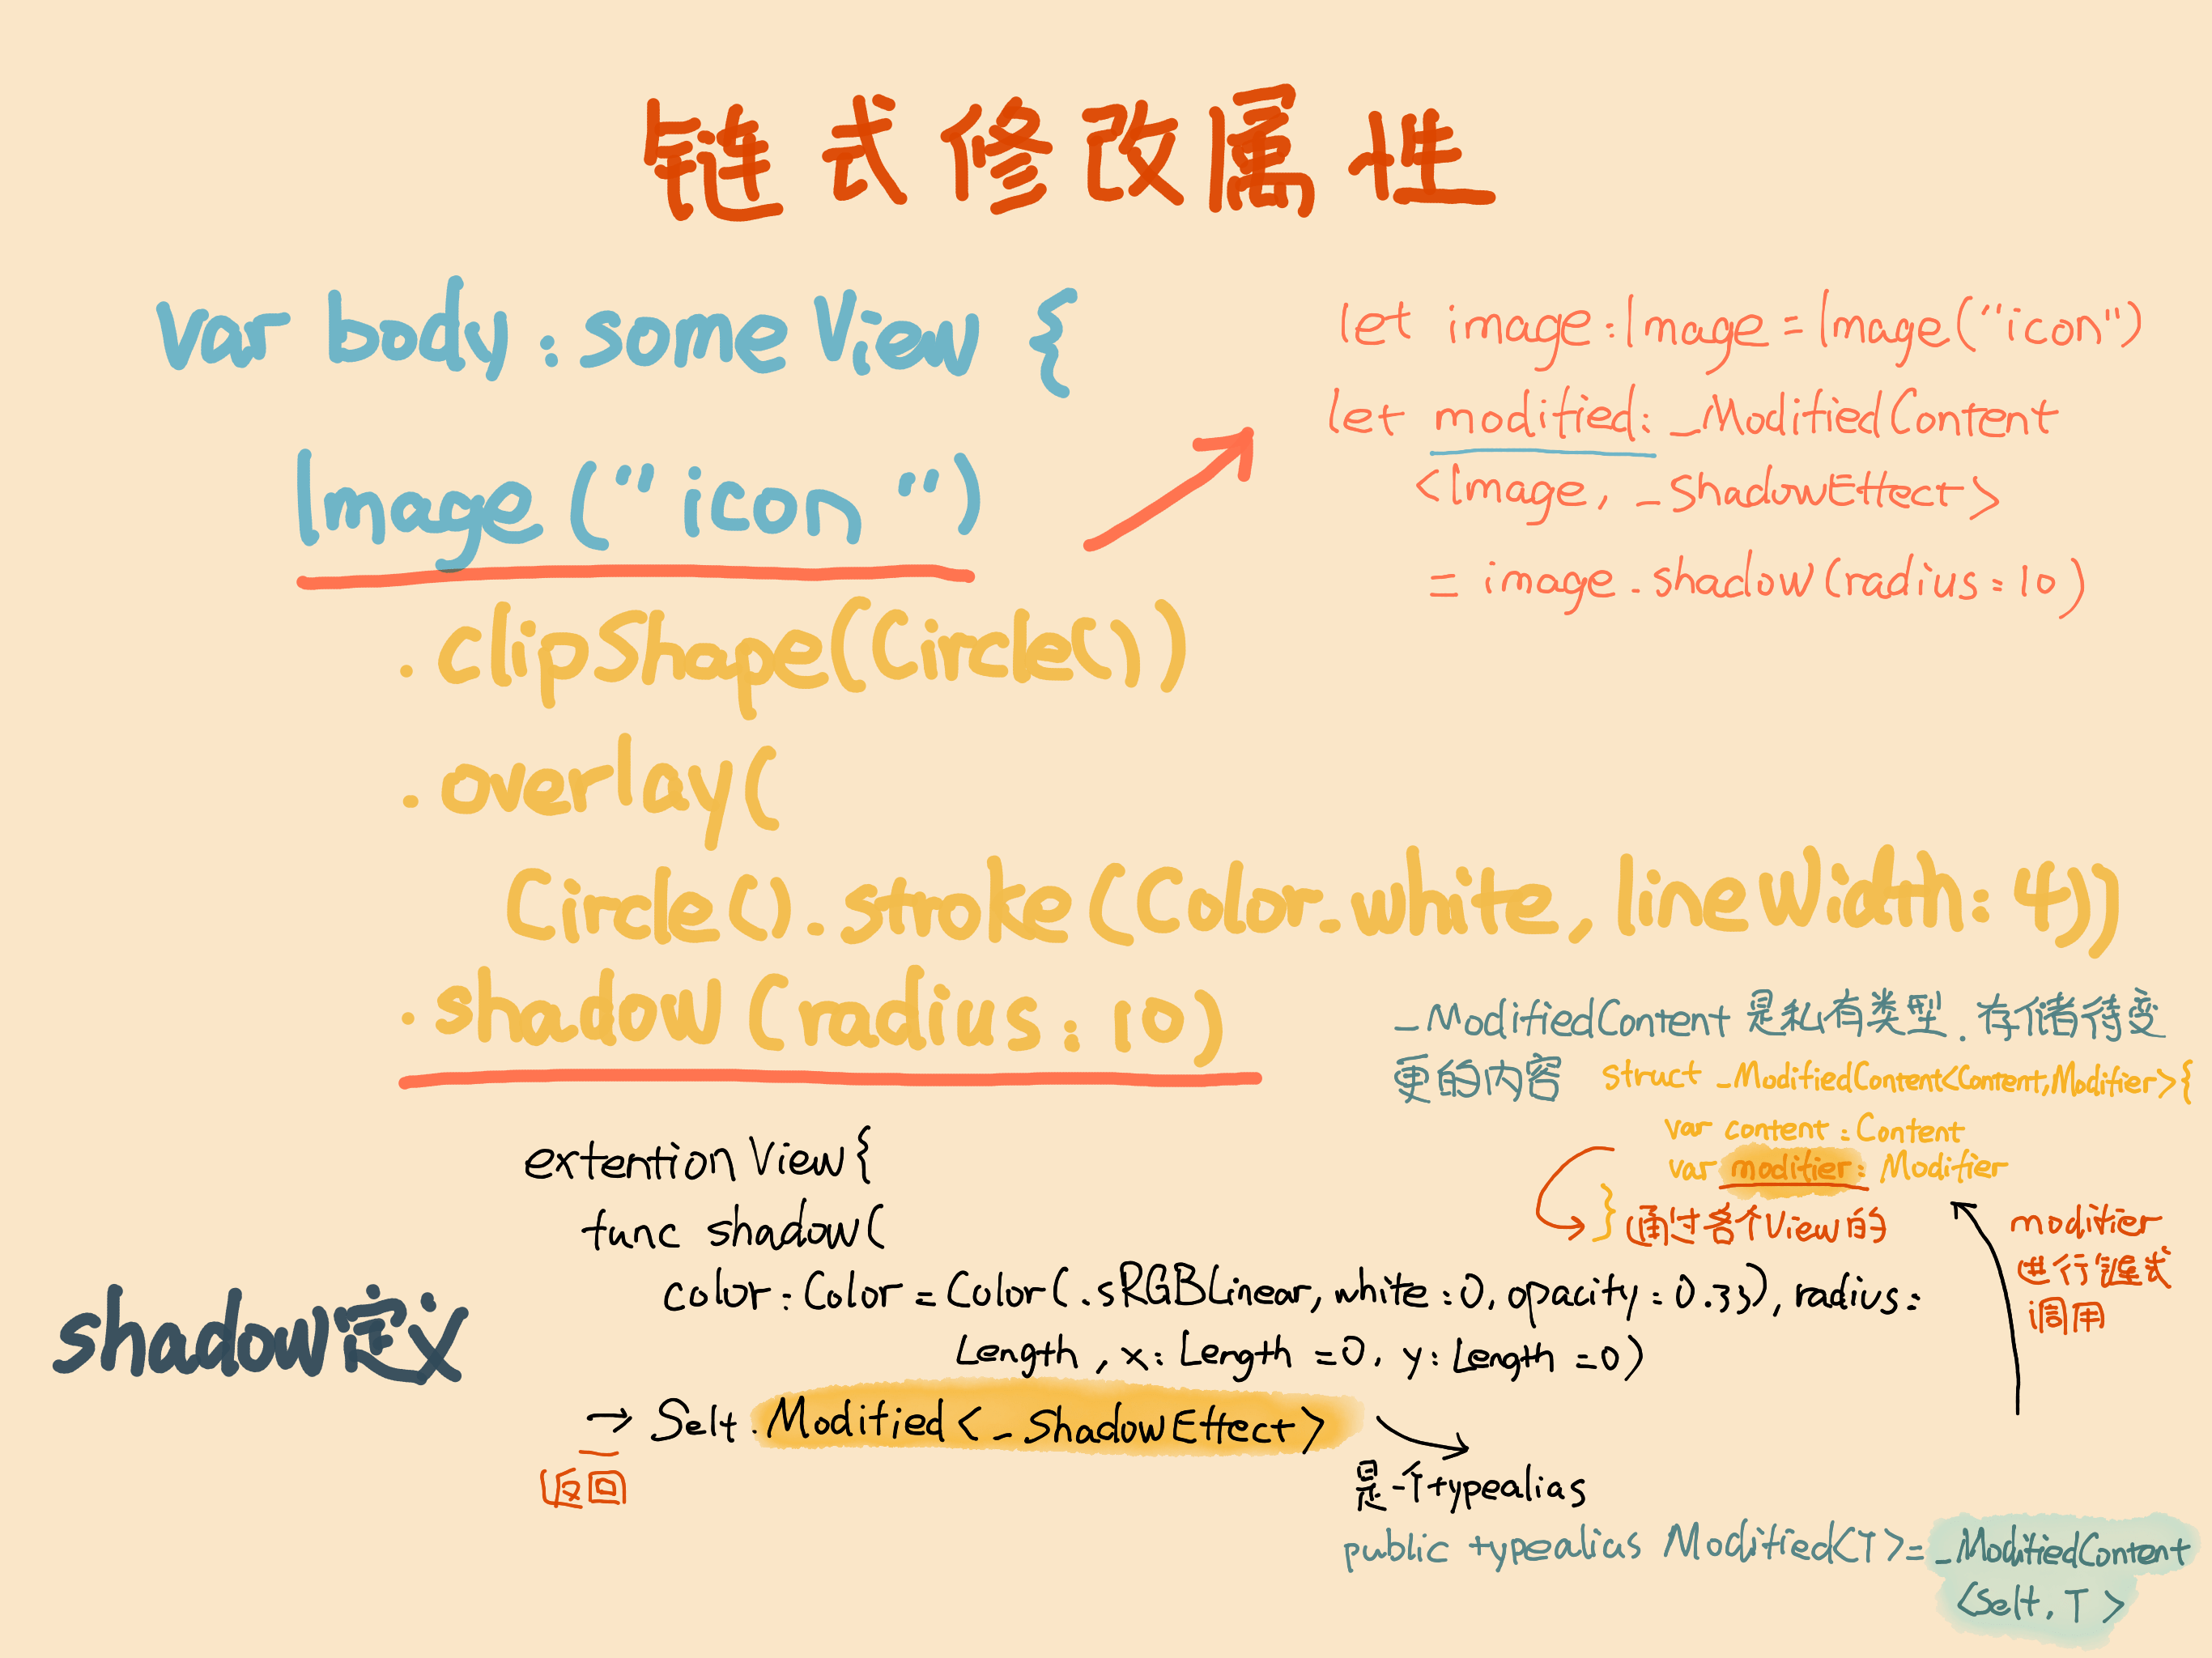 链式修改属性
var body : some View {
Image ("icon")
.clipShape(Circle())
.overlay(
Circle().stroke(Color.white, lineWidth: 4))
.shadow(radius: 10)
let image: Image = Image("icon")
let modified: _ModifiedContent
<Image, _ShadowEffect>
= image.shadow(radius: 10)
_ModifiedContent 是私有类型.存储待变
更的内容
struct _ModifiedContent<Content, Modifier> {
var content: Content
var modifier: Modifier
}
通过各个View的
modifier
进行链式
调用
shadow定义
extention View {
func shadow(
color: Color = Color(.sRGBLinear, white: 0, opacity: 0.33), radius:
Length, x: Length = 0, y: Length = 0)
→ Self.Modified<_ShadowEffect>
返回
是一个typealias
public typealias Modified<T> = _ModifiedContent
<Self, T>